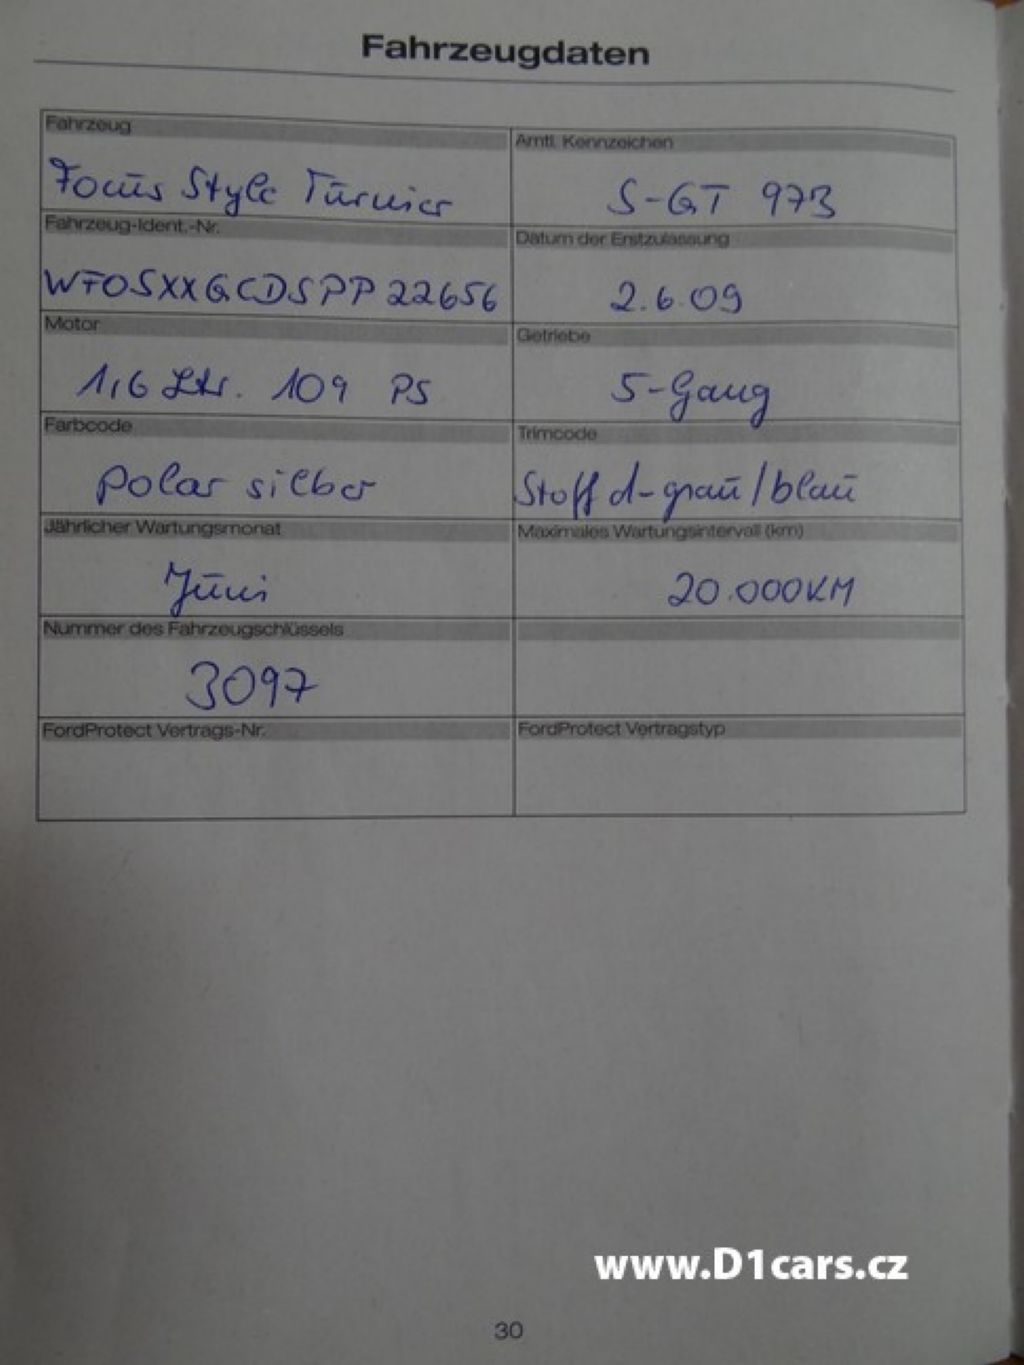 Fahrzeugdaten
Fahrzeug
Amtl. Kennzeichen
Focus Style Turnier
S-GT 973
Fahrzeug-Ident.-Nr.
Datum der Erstzulassung
WF0SXXGCDSPP22656
2.6.09
Motor
Getriebe
1,6 Ltr. 109 PS
5-Gang
Farbcode
Trimcode
polar silber
Stoff d-grau/blau
Jährlicher Wartungsmonat
Maximales Wartungsintervall (km)
Juni
20.000KM
Nummer des Fahrzeugschlüssels
3097
FordProtect Vertrags-Nr.
FordProtect Vertragstyp
www.D1cars.cz
30